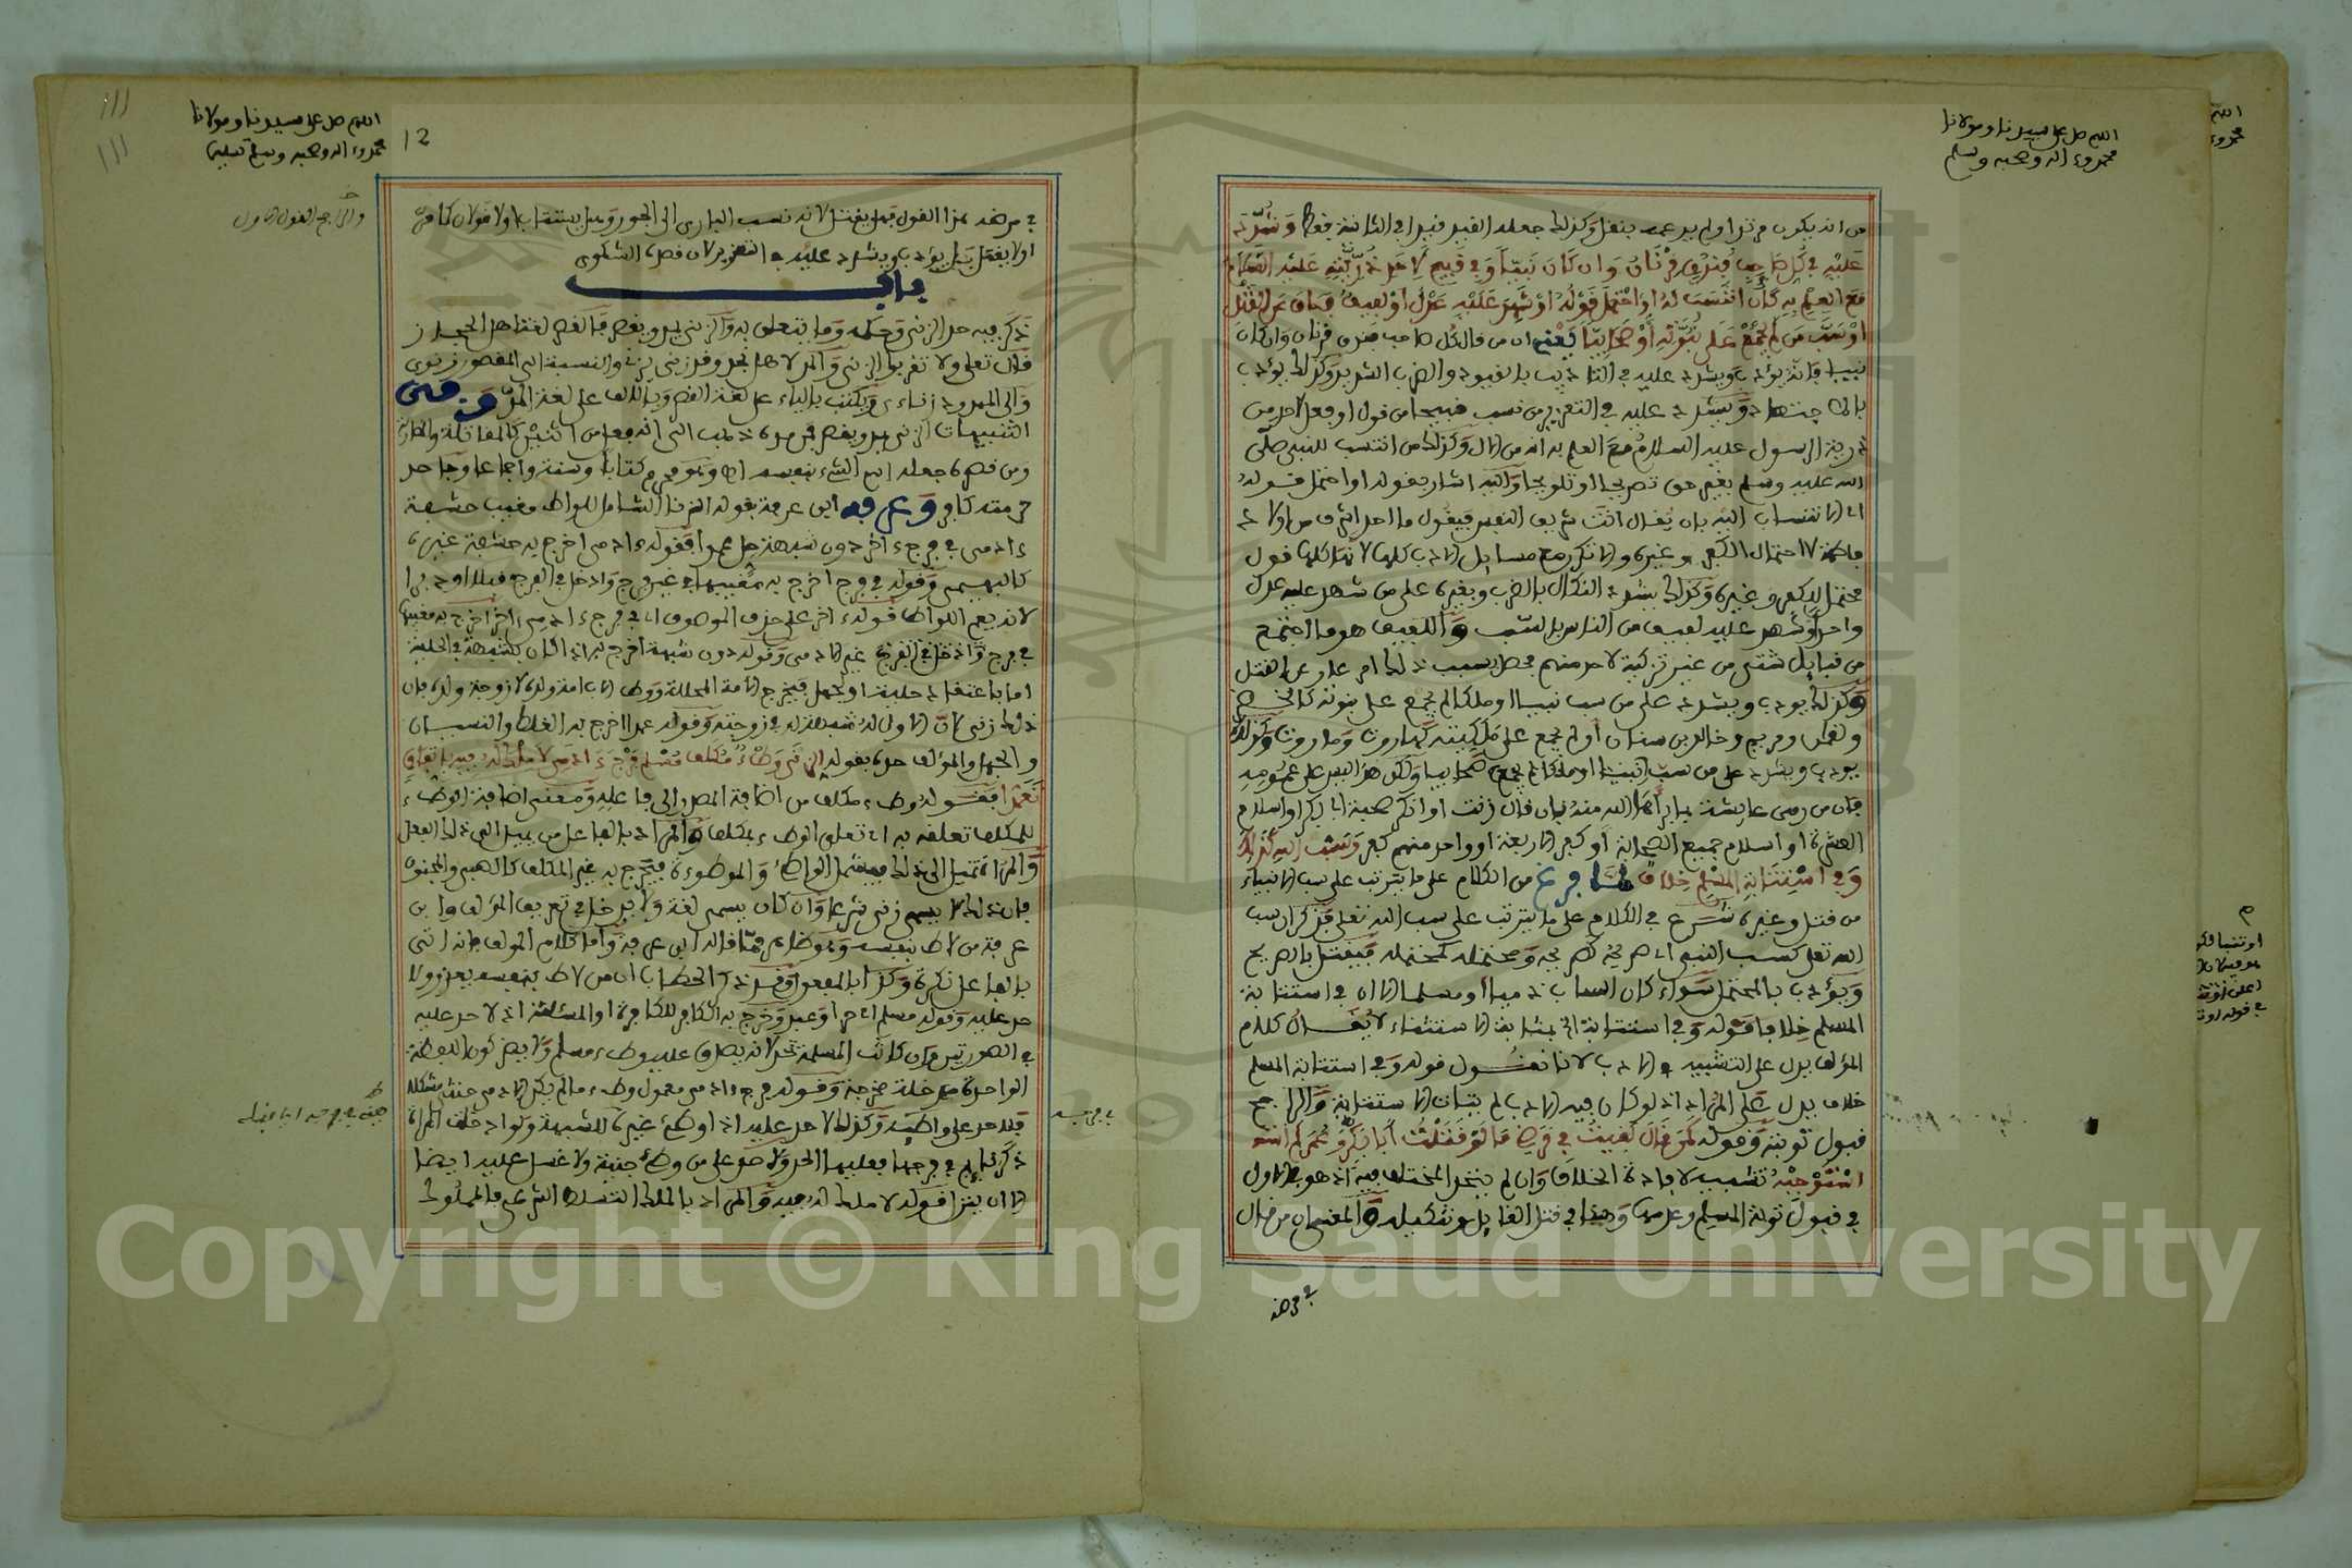 اللهم صل على سيدنا ومولانا
محمد وءاله وصحبه وسلم
من انه يكون مرتدا ولم يرد عمد بنقل وكذلك جعله القيد قيدا في الثانية فقط وشدد
عليه في كل صاحب فندق قرنان وان كان نبيا وفي قبيح لاحد ذريته عليه السلام
مع العلم به كان انتسب له او احتمل قوله او شهد عليه عدل او لفيف فعاق عن القتل
او سب من لم يجمع على نبوته او صحابيا يعني ان من قال كل صاحب فندق قرنان ولو كان
نبيا فانه يؤدب ويشدد عليه في التاديب بالقيود والضرب الشديد وكذلك يؤدب
بالاجتهاد ويشدد عليه في التعزير من نسب قبيحا من قول او فعل لاحد من
ذرية الرسول عليه السلام مع العلم به انه من الال وكذلك من انتسب للنبي صلى
الله عليه وسلم بغير حق تصريحا او تلويحا واليه اشار بقوله او احتمل قوله
اي الانتساب اليه بان يقال انت شريف النفس فيقول ما احد اشرف من اولاد
فاطمة لاحتمال الكفر وغيره وانما ذكر مع مسايل الادب كلها لانها كلها قول
محتمل للكفر وغيره وكذلك يشدد النكال بالضرب وبغيره على من شهد عليه عدل
واحد او شهد عليه لفيف من الناس بالسب واللفيف هو ما اجتمع
من قبايل شتى من غير تزكية لاحد منهم فحصل بسبب ذلك امر عاق عن القتل
وكذلك يؤدب ويشدد على من سب نبيا او ملكا لم يجمع على نبوته كالخضر
ولقمان ومريم وخالد بن سنان او لم يجمع على ملكيته كهاروت وماروت وكذلك
يؤدب ويشدد على من سب صحابيا وليس هذا القيد على عمومه
فان من رمى عايشة بما برأها الله منه بان قال زنت او انكر صحبة ابا بكر او اسلام
العشرة او اسلام جميع الصحابة او كفر الاربعة او واحد منهم كفر وسب الله كذلك
وفي استتابة المسلم خلاف لما فرغ من الكلام على ما يترتب على سب الانبياء
من قتل وغيره شرع في الكلام على ما يترتب على سب الله تعالى فذكر ان سب
الله تعالى كسب النبي اي صريحه كصريحه ومحتمله كمحتمله فيقتل بالصريح
ويؤدب بالمحتمل سواء كان الساب ذميا او مسلما الا ان في استتابة
المسلم خلافا قوله وفي استتابة الخ بمثابة الاستثناء لا يقال كلام
المؤلف يدل على التشبيه في الادب لانا نقول قوله وفي استتابة المسلم
خلاف يدل على المراد اذ لو كان فيه الادب لم يتات الاستتابة والراجح
قبول توبته وقوله كمن قال لقيت في مرضي ما لو قتلت ابا بكر وعمر لم
استوجبه تشبيه لافادة الخلاف وان لم يتحد المختلف فيه اذ هو في الاول
في قبول توبة المسلم وعدمها وهنا في قتل القايل وتنكيله والمعنى ان من قال
في مرضه
اللهم صل على سيدنا ومولانا
محمد وءاله وصحبه وسلم تسليما
12
111
والراجح القول الاول
في مرضه هذا القول قيل يقتل لانه نسب الباري الى الجور وهل يستتاب او لا قولان كافرا
او لا يقتل بل يؤدب ويشدد عليه في التعزير لان قصده الشكوى
باب
ذكر فيه حد الزنى وحكمه وما يتعلق به والزنى يمد ويقصر فالقصر لغة اهل الحجاز
قال تعلى ولا تقربوا الزنى والمد لاهل نجد وقد زنى يزني والنسبة الى المقصور زنوي
والى الممدود زناءي ويكتب بالياء على لغة القصر وبالالف على لغة المد وفى
التنبيهات الزنى يمد ويقصر فمن مده ذهب الى انه فعل من اثنين كالمقاتلة والمضاربة
ومن قصره جعله اسم الشيء بنفسه اه وهو محرم كتابا وسنة واجماعا وجاحد
حرمته كافر وعرفه ابن عرفة بقوله الزنا الشامل للواط مغيب حشفة
ءادمي في فرج ءاخر دون شبهة حل عمدا فقوله ءادمي اخرج به حشفة غيره
كالبهيمي وقوله في فرج اخرج به مغيبها في غير فرج وادخل في الفرج قبلا او دبرا
لانه يعم اللواط قوله ءاخر على حذف الموصوف اي في فرج ءادمي ءاخر اخرج به مغيبها
في فرج وادخل في الفرج غير الادمي وقوله دون شبهة اخرج به ما اذا كان بشبهة في الحلية
اما باعتقاد حلية او بجهل فيخرج الامة المحللة ووطء الاب امة ولده لا زوجة ولده فان
ذلك زنى لان الاول له شبهة له في زوجته وقوله عمدا اخرج به الغلط والنسيان
والجهل والمؤلف حده بقوله الزنى وطء مكلف مسلم فرج ءادمي لا ملك له فيه باتفاق
تعمدا فقوله وطء مكلف من اضافة المصدر الى فاعله ومعنى اضافة الوطء
للمكلف تعلقه به اي تعلق الوطء بمكلف والمراد بالفاعل من يميل الى ذلك الفعل
والمراة تميل الى ذلك فيشمل الواطئ والموطوءة فيخرج به غير المكلف كالصبي والمجنون
فان ذلك لا يسمى زنى شرعا وان كان يسمى لغة ولا يدخل في تعريف المؤلف وابن
عرفة من لاط بنفسه وهو ظاهر مما قاله ابن عرفة واما كلام المؤلف فانه اتى
بالفاعل نكرة وكذا بالمفعول وقد ذكر الحطاب ان من لاط بنفسه يعزر ولا
حد عليه وقوله مسلم اي حر او عبد وخرج به الكافر للكافرة او المسلمة اذ لا حد عليه
في الصورتين وان كانت المسلمة تحد لانه يصدق عليه وطء مسلم ولا يضر كون اللفظة
الواحدة مدخلة مخرجة وقوله فرج ءادمي معمول وطء ما لم يكن الادمي خنثى مشكلا
فلا حد على واطئه وكذلك لا حد عليه اذا وطئ غيره للشبهة ولو ادخلت المراة
ذكر نايم في فرجها فعليها الحد ولا حد على من وطئ جنية ولا غسل عليه ايضا
الا ان ينزل قوله لا ملك له فيه والمراد بالملك التسلط الشرعي فالمملوك
Copyright © King Saud University